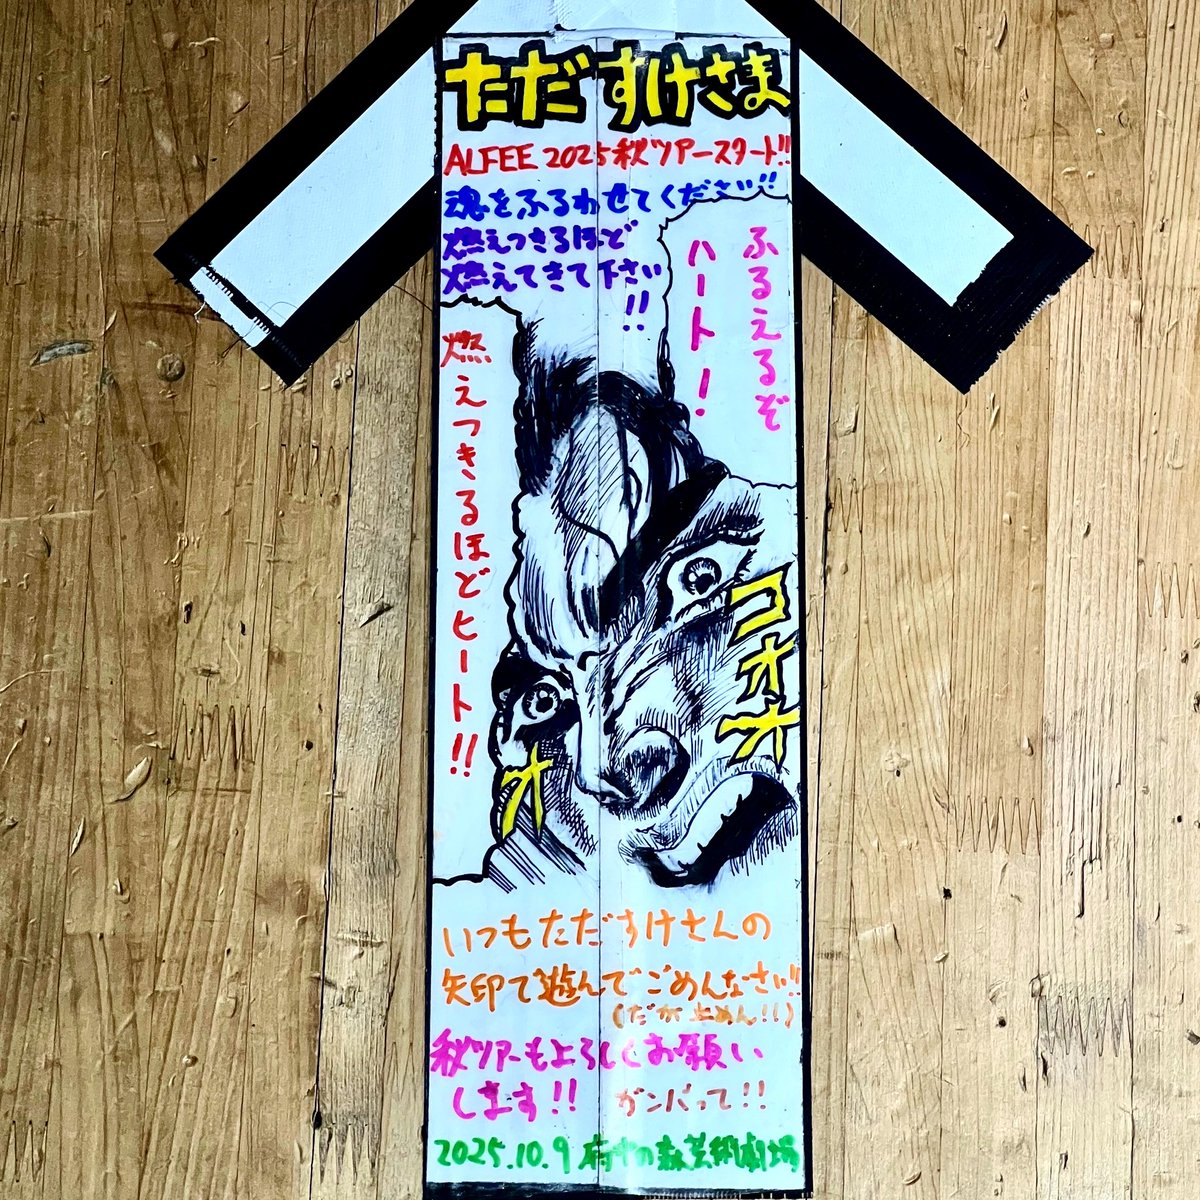 ただすけさま
ALFEE 2025秋ツアースタート!!
魂をふるわせてください!!
燃えつきるほど
燃えてきて下さい
!!
ふるえるぞ
ハート!
燃えつきるほどヒート!!
コオオ
オ
いつもただすけさんの
矢印で遊んでごめんなさい!!
(だが止めん!!)
秋ツアーもよろしくお願い
します!! ガンバって!!
2025.10.9 府中の森芸術劇場